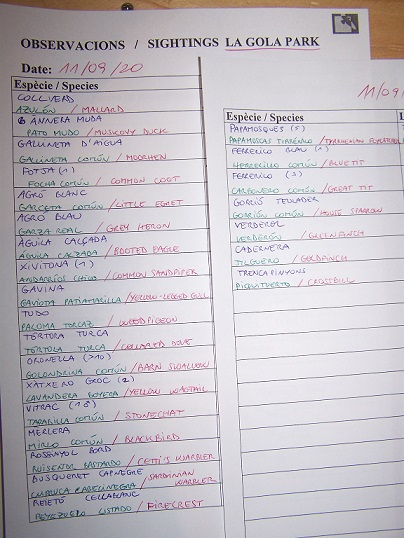 OBSERVACIONS / SIGHTINGS LA GOLA PARK
Date: 11/09/20
Espècie / Species
COLLVERD
AZULÓN / MALLARD
ÀNNERA MUDA
PATO MUDO / MUSCOVY DUCK
GALLINETA D'AIGUA
GALLINETA COMÚN / MOORHEN
FOTJA (1)
FOCHA COMÚN / COMMON COOT
AGRÓ BLANC
GARCETA COMÚN / LITTLE EGRET
AGRÓ BLAU
GARZA REAL / GREY HERON
ÀGUILA CALÇADA
ÁGUILA CALZADA / BOOTED EAGLE
XIVITONA (1)
ANDARRÍOS CHICO / COMMON SANDPIPER
GAVINA
GAVIOTA PATIAMARILLA / YELLOW-LEGGED GULL
TUDÓ
PALOMA TORCAZ / WOODPIGEON
TÓRTORA TURCA
TÓRTOLA TURCA / COLLARED DOVE
ORONELLA (>10)
GOLONDRINA COMÚN / BARN SWALLOW
XÀTXERO GROC (2)
LAVANDERA BOYERA / YELLOW WAGTAIL
VITRAC (1♂)
TARABILLA COMÚN / STONECHAT
MÈRLERA
MIRLO COMÚN / BLACKBIRD
ROSSINYOL BORD
RUISEÑOR BASTARDO / CETTI'S WARBLER
BUSQUERET CAPNEGRE
CURRUCA CABECINEGRA / SARDINIAN WARBLER
REIETÓ CELLABLANC
REYEZUELO LISTADO / FIRECREST
11/09/
Espècie / Species
PAPAMOSQUES (5)
PAPAMOSCAS TIRRÉNICO / TYRRHENIAN FLYCATCHER
FERRERICO BLAU (1)
HERRERILLO COMÚN / BLUE TIT
FERRERICO (3)
CARBONERO COMÚN / GREAT TIT
GORRIÓ TEULADER
GORRIÓN COMÚN / HOUSE SPARROW
VERDEROL
VERDERÓN / GREENFINCH
CADERNERA
JILGUERO / GOLDFINCH
TRENCAPINYONS
PIQUITUERTO / CROSSBILL